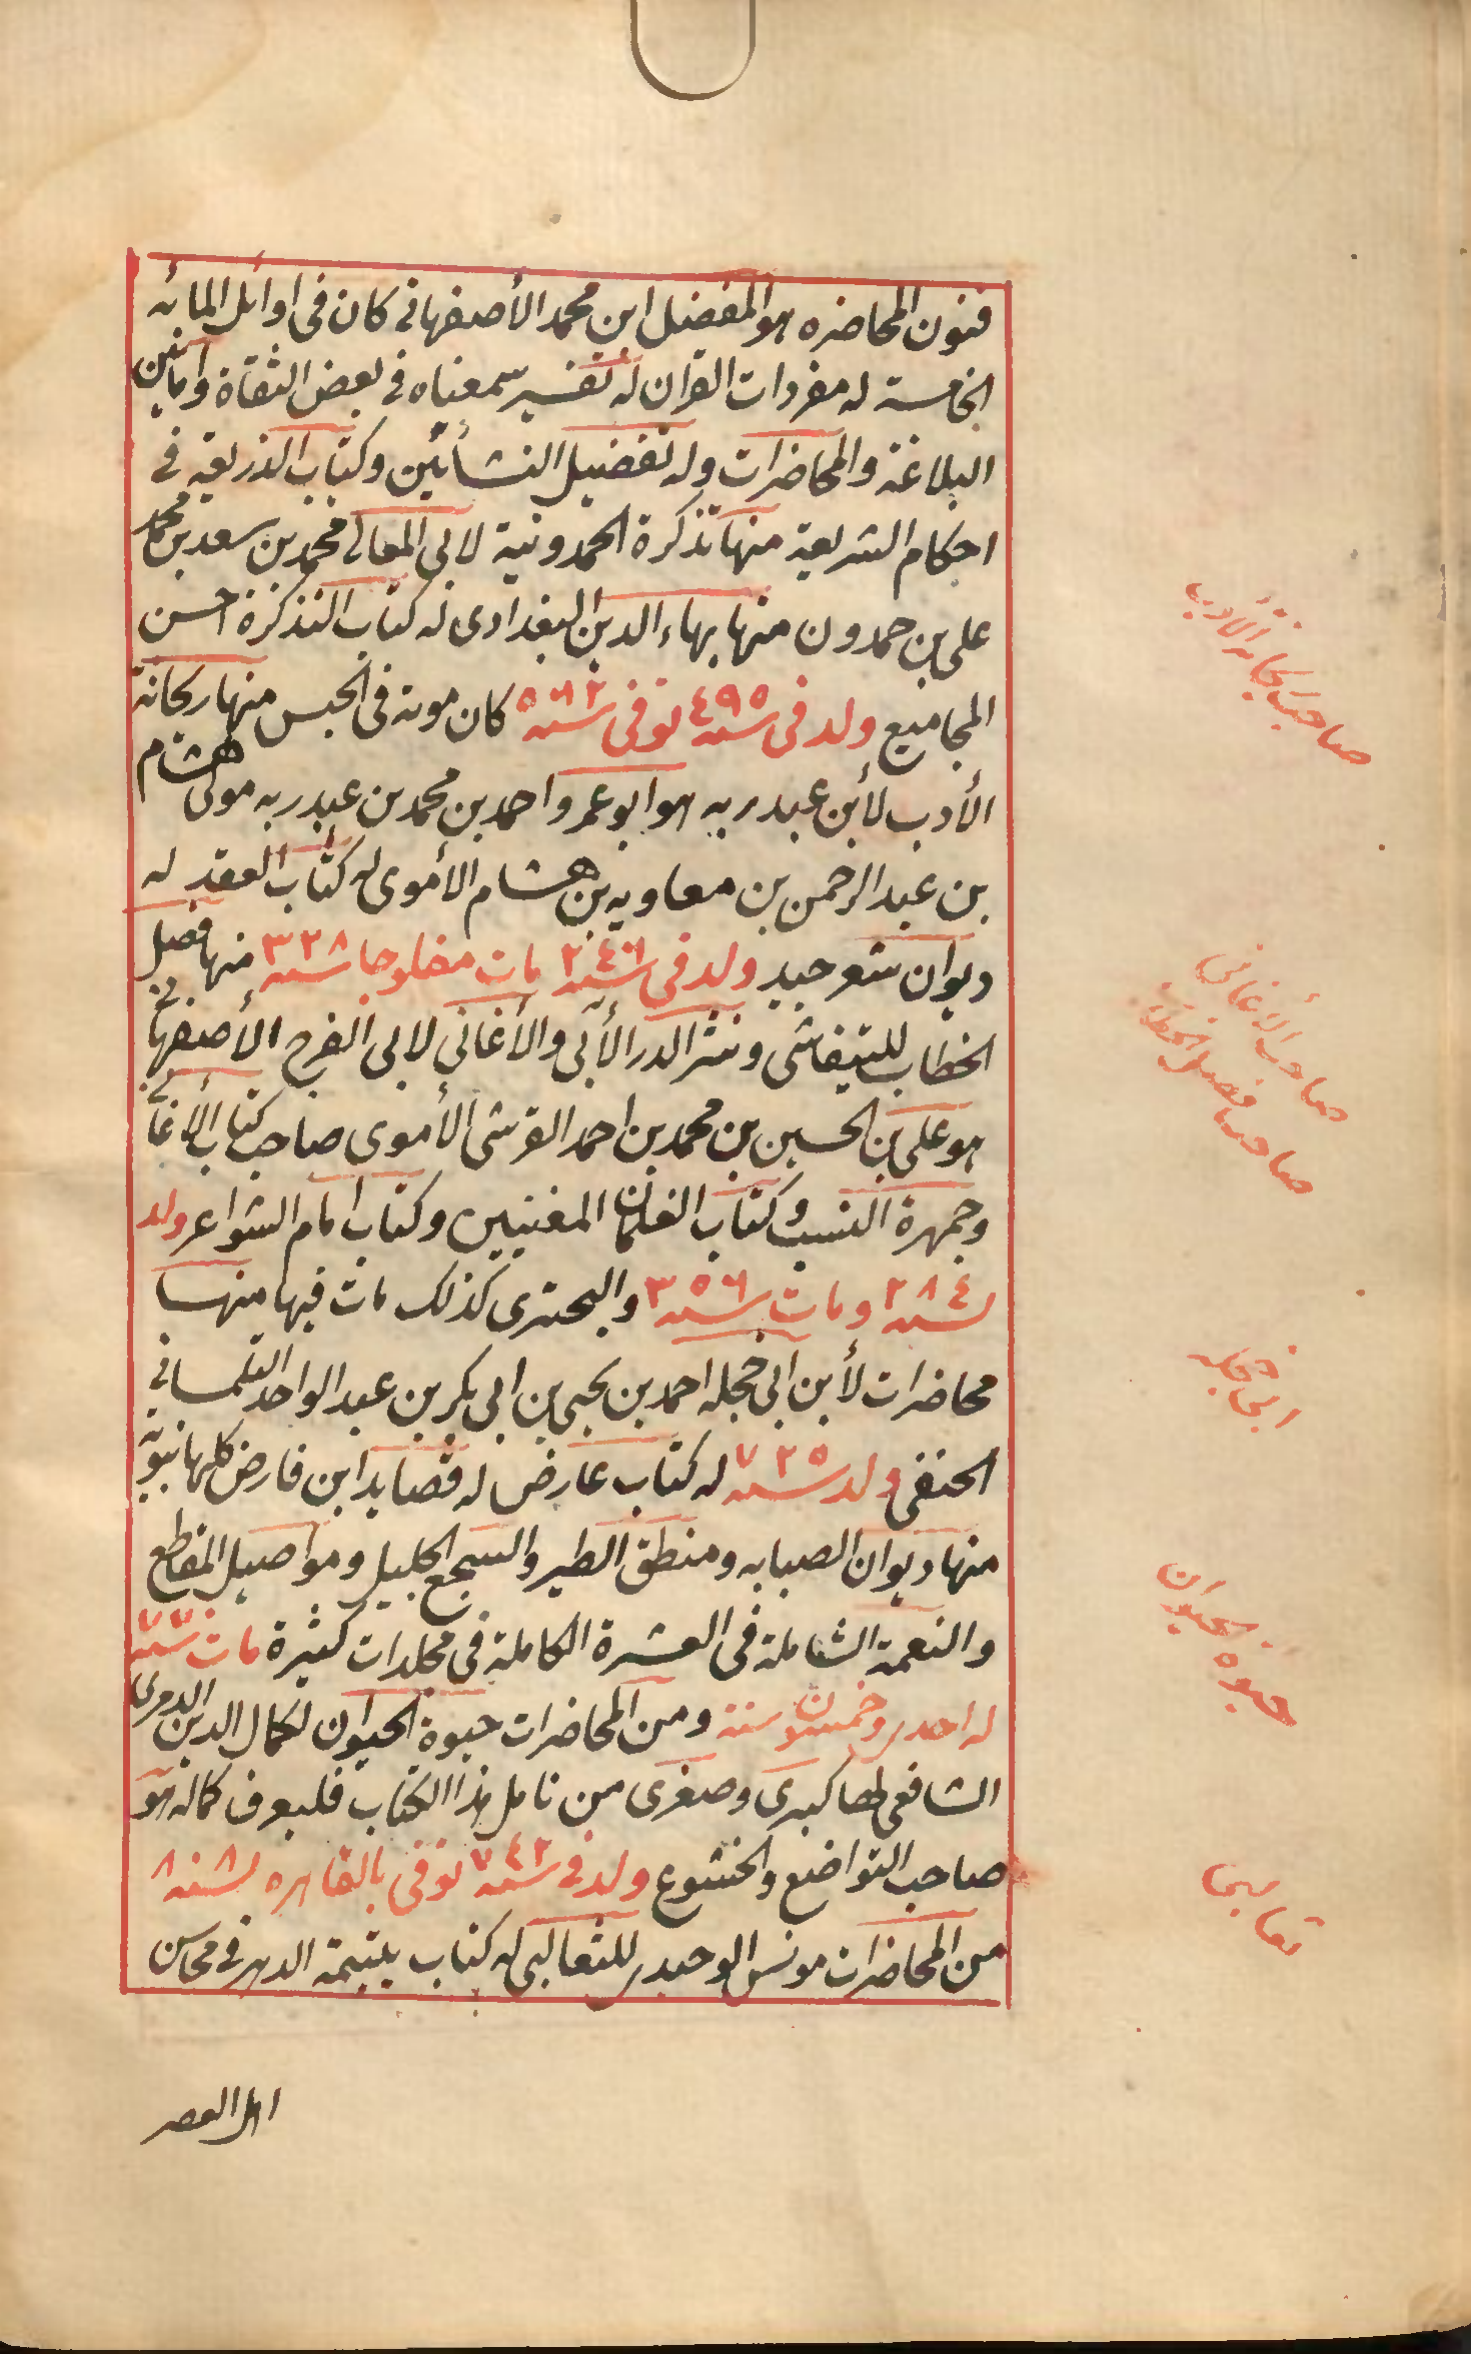 فنون المحاضره هو المفضل ابن محمد الأصفهاني كان في اوائل المائه
الخامسة له مفردات القران له تفسير سمعناه في بعض الثقاة وافانين
البلاغة والمحاضرات وله تفضيل النشأتين وكتاب الذريعة في
احكام الشريعة منها تذكرة الحمدونية لابي المعالي محمد بن سعد بن محمد
علي بن حمدون منها بهاء الدين البغدادي له كتاب التذكرة احسن
المجاميع ولد في سنه ٤٩٥ توفى سنه ٥٦٢ كان موته في الحبس منها ريحانة
الأدب لأبن عبد ربه هو ابو عمرو احمد بن محمد بن عبد ربه مولى هشام
بن عبد الرحمن بن معاويه بن هشام الأموى له كتاب العقد له
ديوان شعر جيد ولد في سنه ٢٤٦ مات مفلوجا سنه ٣٢٨ منها فصل
الخطاب للتيفاشى ونثر الدر الأبى والأغاني لابى الفرج الأصفهاني
هو علي بن الحسين بن محمد بن احمد القرشى الأموى صاحب كتاب الأغاني
وجمهرة النسب وكتاب الغلمان المغنيين وكتاب امام الشواعر ولد
سنه ٢٨٤ ومات سنه ٣٥٦ والبحترى كذلك مات فيها منها
محاضرات لأبن ابى حجله احمد بن يحيى بن ابى بكر بن عبد الواحد التلمسانى
الحنفى ولد سنه ٧٢٥ له كتاب عارض له قصايد ابن فارض كلها نبوية
منها ديوان الصبابه ومنطق الطير والسجع الجليل ومواصيل المقاطع
والنعمة الشاملة فى العشرة الكاملة فى مجلدات كثيرة مات سنه
له احدى وخمسون سنة ومن المحاضرات حيوة الحيوان لكمال الدين الدميرى
الشافعى لها كبرى وصغرى من تامل هذا الكتاب فليعرف كماله هو
صاحب التواضع والخشوع ولد فى سنه ٧٤٢ توفى بالقاهره
من المحاضرات مونس الوحيد للثعالبى له كتاب يتيمة الدهر فى محاسن
اهل العصر
صاحب ريحانة الأدب
صاحب الأغانى
صاحب فصل الخطاب
ابى حجله
حيوه الحيوان
ثعالبى